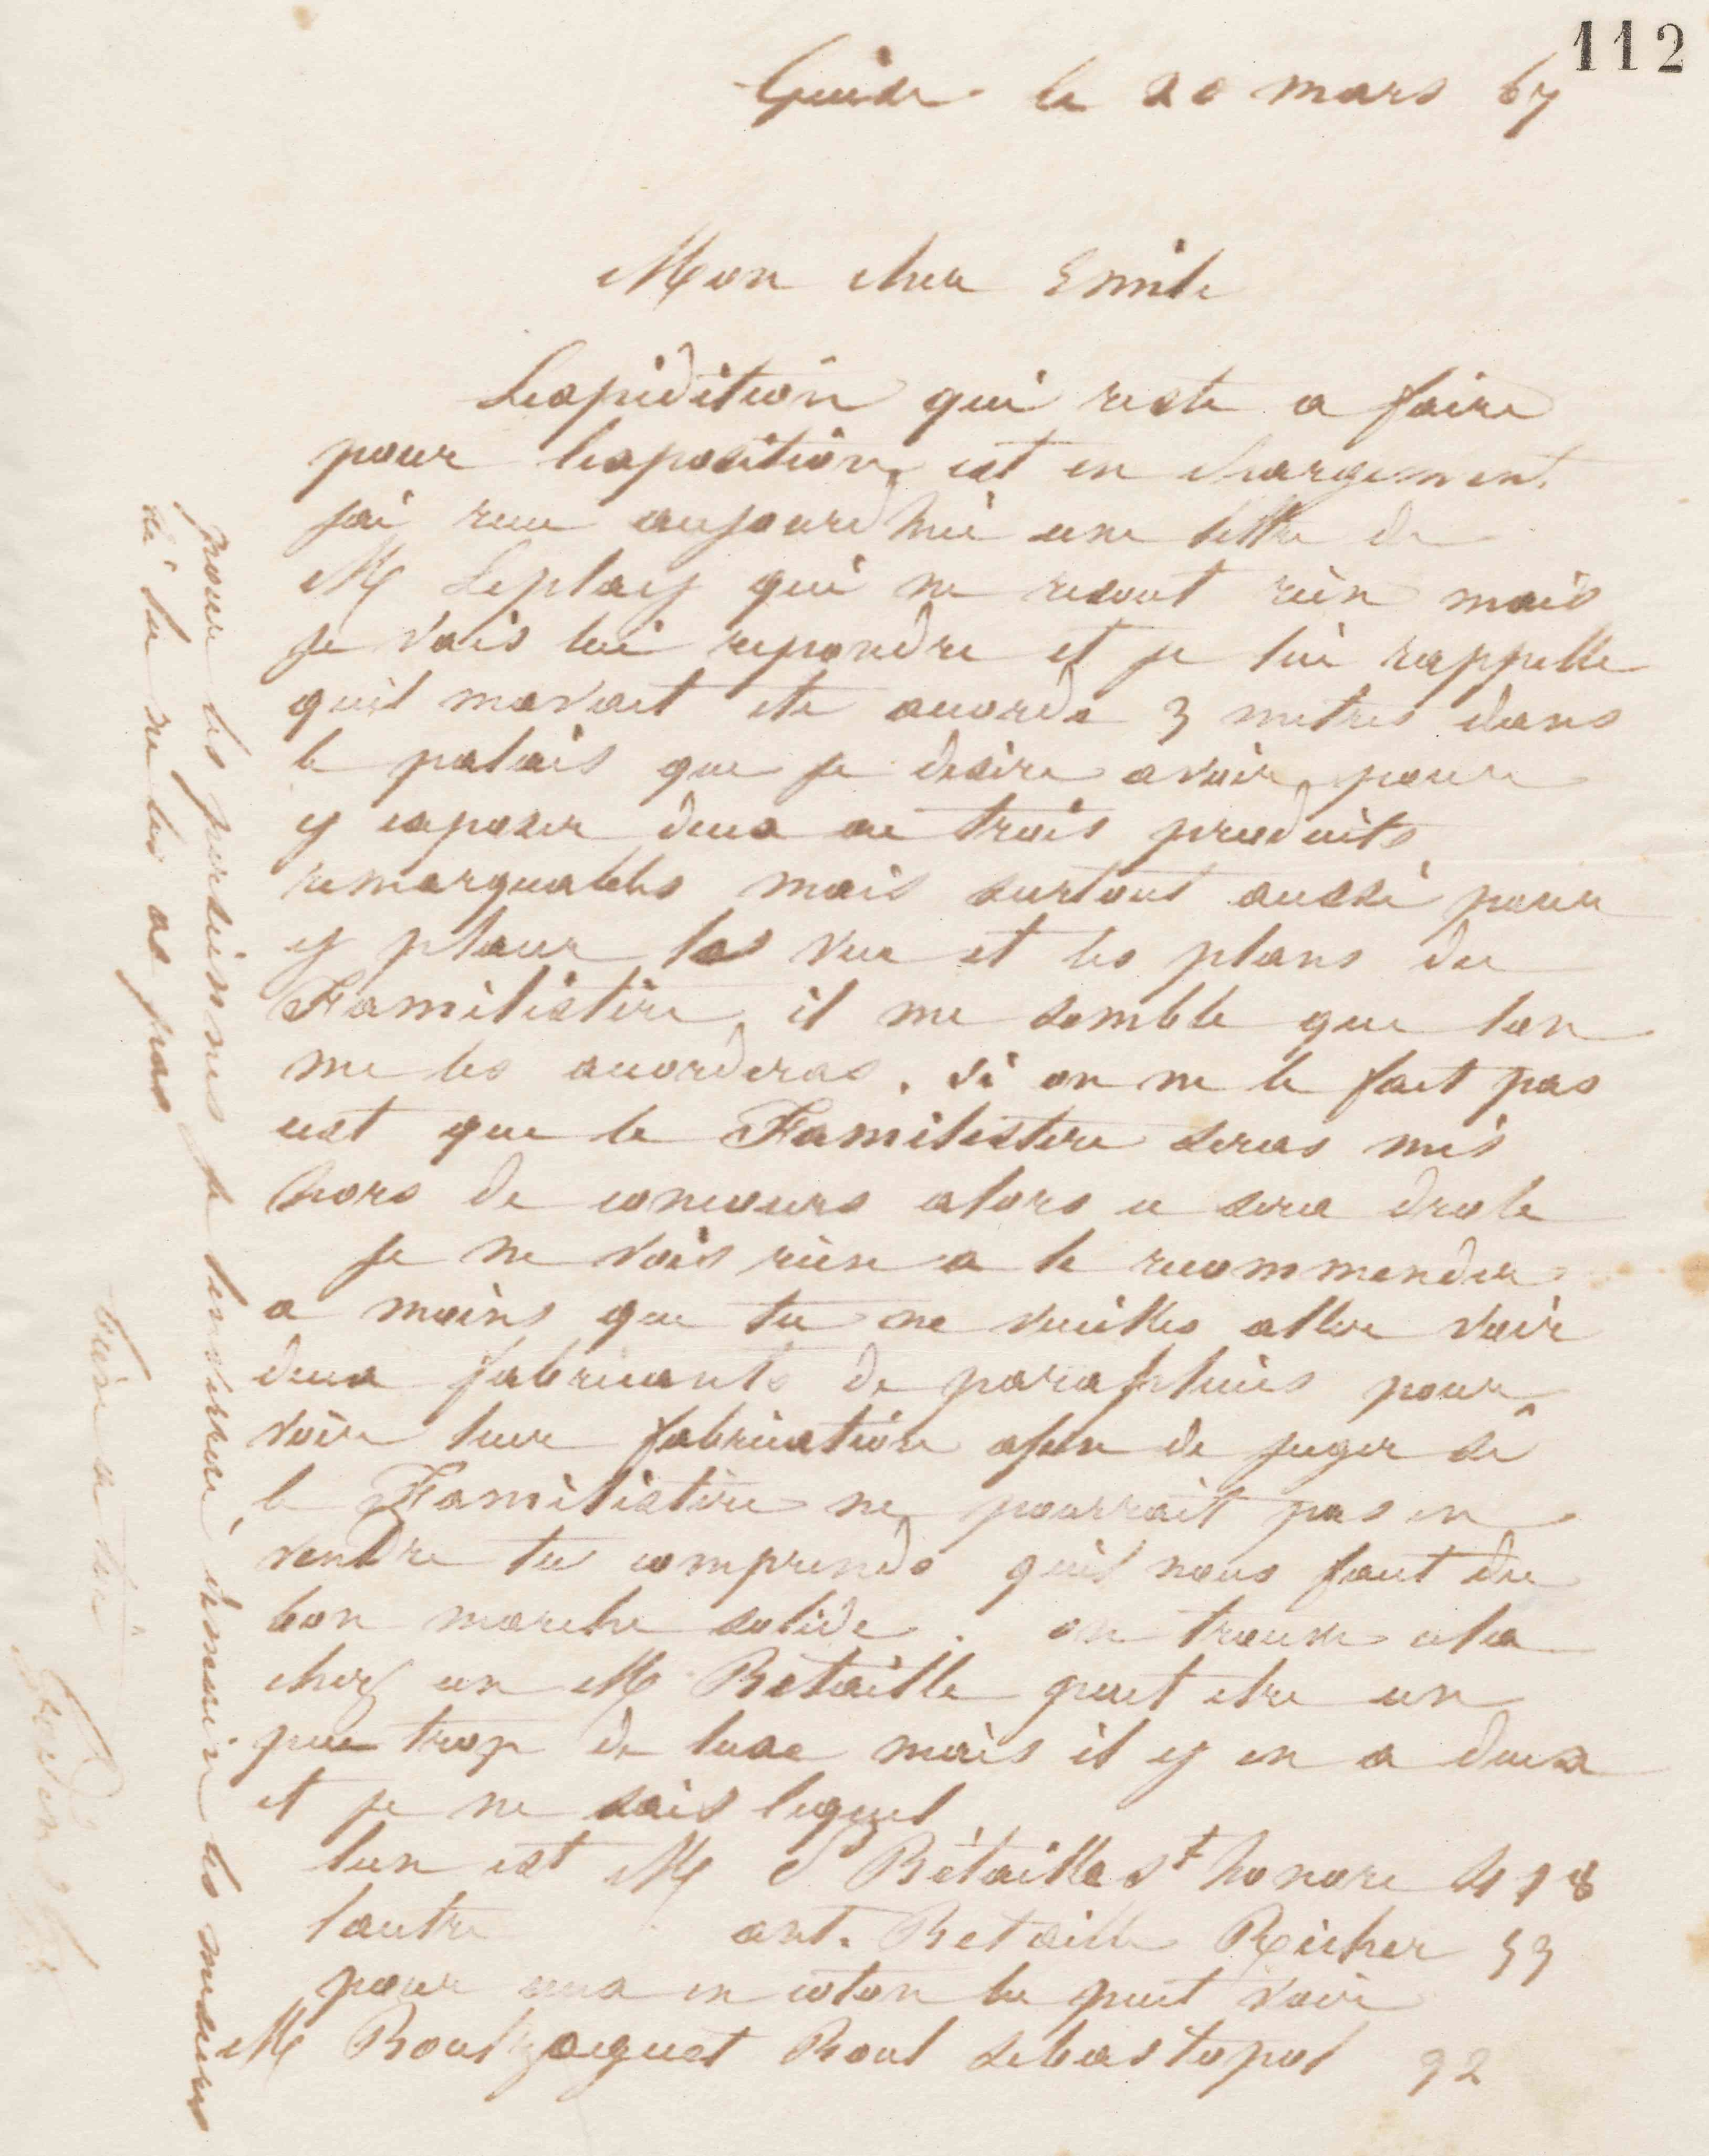 112
Guise le 20 mars 67
Mon cher Emile
Lexpidition qui reste a faire
pour lexposition est en chargement
jai recu aujourdhui une lettre de
M Leplay qui ne resout rien mais
je vais lui repondre et je lui rappelle
quil mavait ete accorde 3 metres dans
le palais que je desire avoir pour
y exposer deux ou trois produits
remarquables mais surtout aussi pour
y placer la vue et les plans du
Familistère il me semble que lon
me les accorderas. si on ne le fait pas
cest que le Familistere seras mis
hors de concours alors ce sera drole
je ne vois rien a te recommender
a moins que tu ne veuilles aller voir
deux fabricants de parapluies pour
voir leur fabrication afin de juger si
le Familistère ne pourrait pas en
vendre tu comprends quil nous faut du
bon marche solide. on trouve cela
chez un M Betaille peut etre un
peu trop de luxe mais il y en a deux
et je ne sais lequel
lun est M Bétaille st honore 418
lautre ant. Betaille Richer 53
pour ceux en coton tu peut voir
M Boul Sebastopol 92
pour les persiennes je tenverrai demain les mesures
si tu ne les as pas
tout a toi
Godin